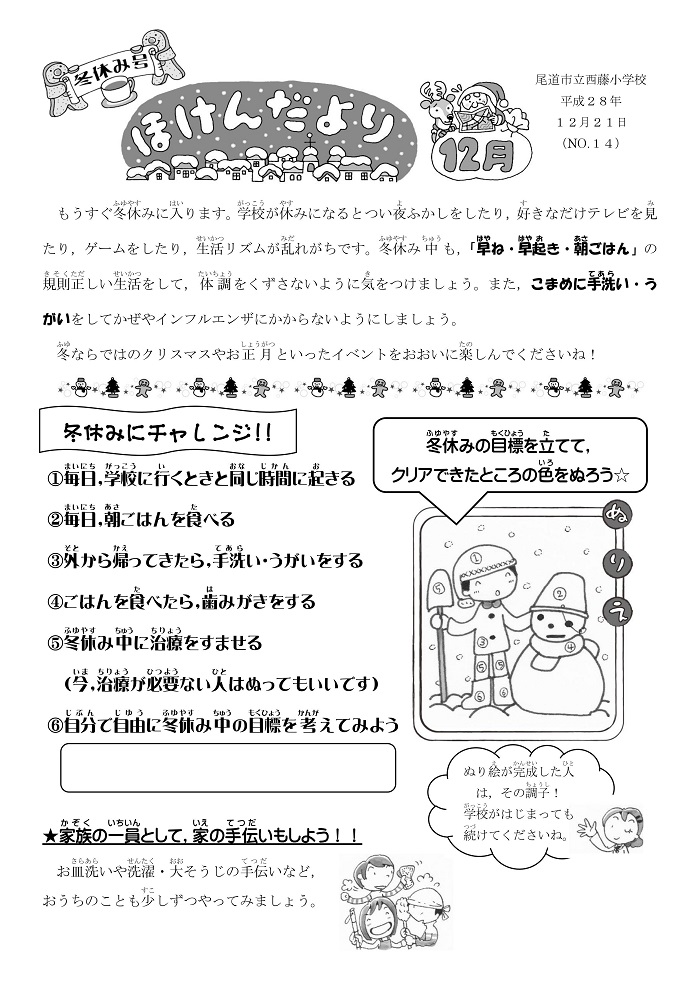 冬休み号
ほけんだより
12月
尾道市立西藤小学校
平成２８年
１２月２１日
（NO.１４）
もうすぐ冬休みに入ります。学校が休みになるとつい夜ふかしをしたり，好きなだけテレビを見
たり，ゲームをしたり，生活リズムが乱れがちです。冬休み中も，「早ね・早起き・朝ごはん」の
規則正しい生活をして，体調をくずさないように気をつけましょう。また，こまめに手洗い・う
がいをしてかぜやインフルエンザにかからないようにしましょう。
冬ならではのクリスマスやお正月といったイベントをおおいに楽しんでくださいね！
冬休みにチャレンジ!!
①毎日，学校に行くときと同じ時間に起きる
②毎日，朝ごはんを食べる
③外から帰ってきたら，手洗い・うがいをする
④ごはんを食べたら，歯みがきをする
⑤冬休み中に治療をすませる
（今，治療が必要ない人はぬってもいいです）
⑥自分で自由に冬休み中の目標を考えてみよう
冬休みの目標を立てて，
クリアできたところの色をぬろう☆
ぬりえ
①
②
⑤
③
④
⑤⑤
⑥⑥
ぬり絵が完成した人
は，その調子！
学校がはじまっても
続けてくださいね。
★家族の一員として，家の手伝いもしよう！！
お皿洗いや洗濯・大そうじの手伝いなど，
おうちのことも少しずつやってみましょう。